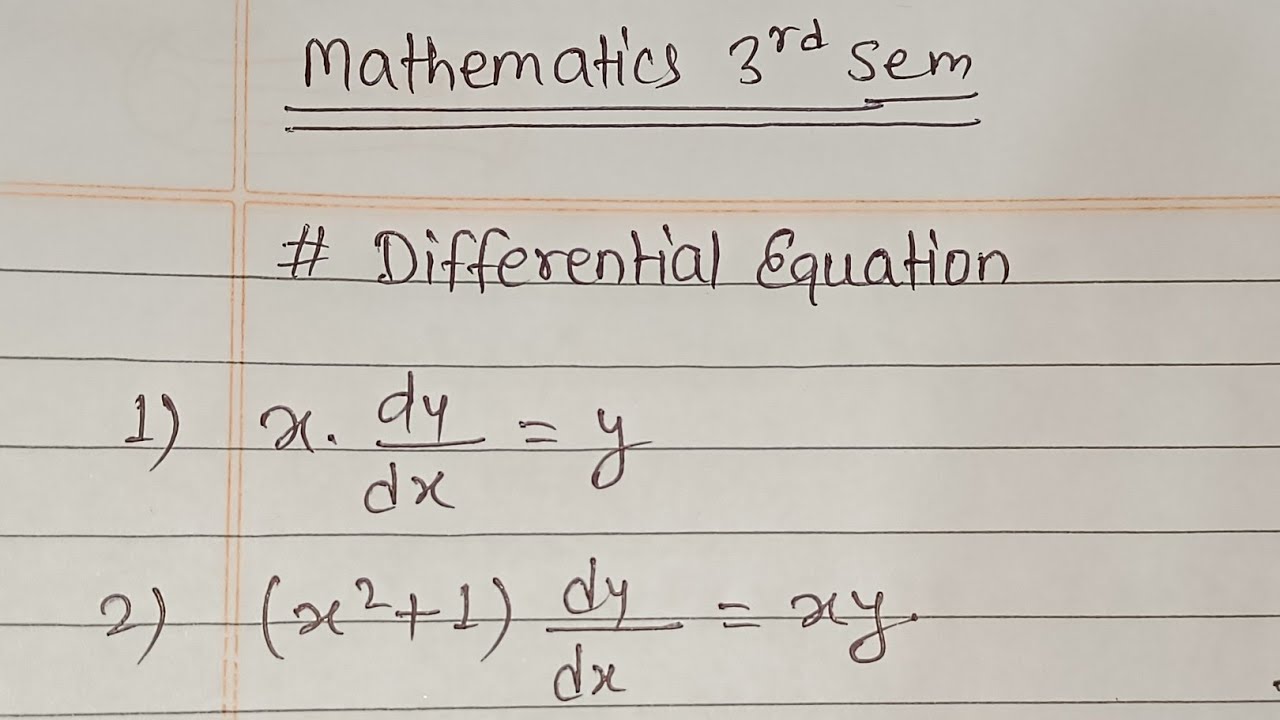 Mathematics 3rd Sem
# Differential Equation
1) x. dy/dx = y
2) (x²+1) dy/dx = xy.